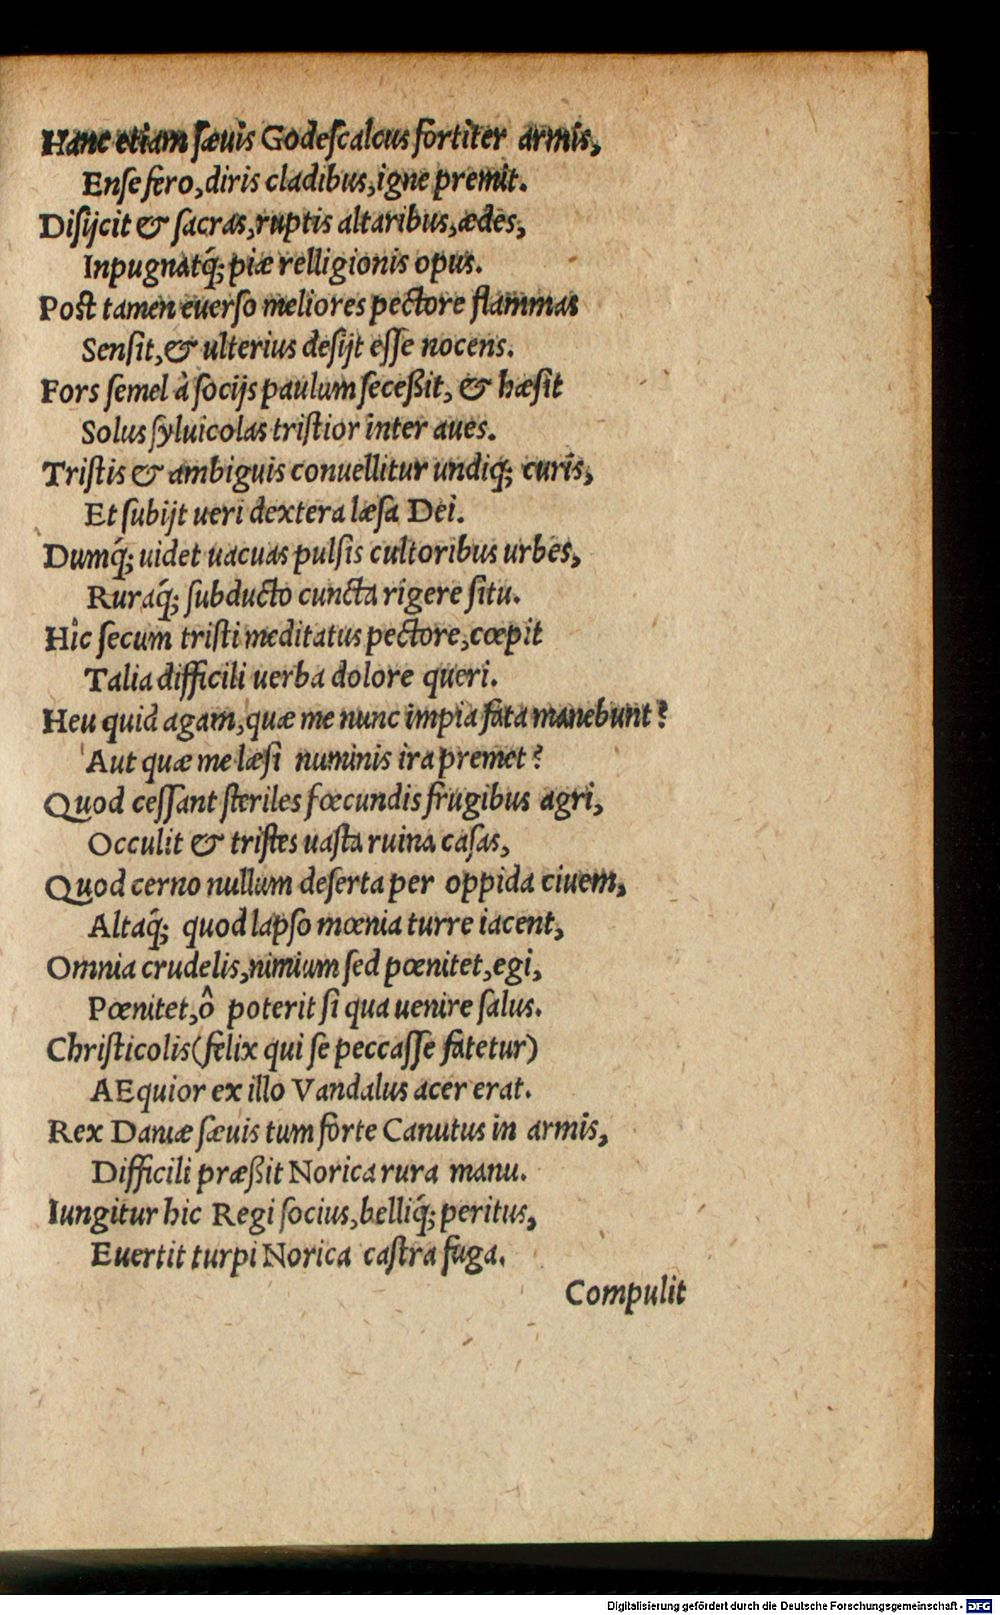 Hanc etiam ſæuis Godeſcalcus fortiter armis,
Enſe fero, diris cladibus, igne premit.
Diſijcit & ſacras, ruptis altaribus, ædes,
Inpugnatq́; piæ relligionis opus.
Post tamen euerſo meliores pectore flammas
Senſit, & ulterius deſijt eſſe nocens.
Fors ſemel à ſocijs paulum ſeceßit, & hæſit
Solus ſyluicolas triſtior inter aues.
Triſtis & ambiguis conuellitur undiq; curis,
Et ſubijt ueri dextera læſa Dei.
Dumq́; uidet uacuas pulſis cultoribus urbes,
Ruraq́; ſubducto cuncta rigere ſitu.
Hîc ſecum triſti meditatus pectore, cœpit
Talia difficili uerba dolore queri.
Heu quid agam, quæ me nunc impia fata manebunt?
Aut quæ me læſi numinis ira premet?
Quod ceſſant ſteriles fœcundis frugibus agri,
Occulit & triſtes uaſta ruina caſas,
Quod cerno nullum deſerta per oppida ciuem,
Altaq́; quod lapſo mœnia turre iacent,
Omnia crudelis, nimium ſed pœnitet, egi,
Pœnitet, ô poterit ſi qua uenire ſalus.
Chriſticolis (felix qui ſe peccaſſe fatetur)
AEquior ex illo Vandalus acer erat.
Rex Daniæ ſæuis tum forte Canutus in armis,
Difficili præßit Norica rura manu.
Iungitur hic Regi ſocius, belliq́; peritus,
Euertit turpi Norica caſtra fuga.
Compulit
Digitalisierung gefördert durch die Deutsche Forschungsgemeinschaft - DFG